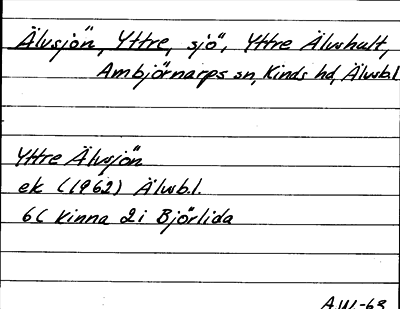 Älvsjön, Yttre, sjö, Yttre Älvshult,
Ambjörnarps sn, Kinds hd, Älvsb.l
Yttre Älvsjön
ek (1962) Älvsb.l.
6C Kinna 2i Björlida
A.W.-63